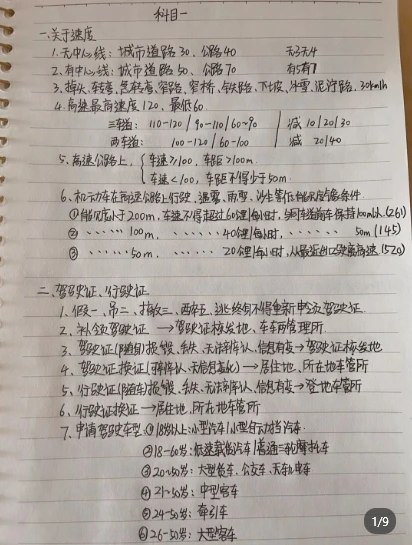 科目一
一、关于速度
1. 无中心线：城市道路30、公路40 无3无4
2. 有中心线：城市道路50、公路70 有5有7
3. 掉头、转弯、急转弯、窄路、窄桥、铁路、下坡、冰雪、泥泞路，30km/h
4. 高速最高速度120，最低60
三车道：110-120 / 90-110 / 60-90 减10/20/30
两车道：100-120 / 60-100 减20/40
5. 高速公路上，车速≥100，车距>100m
车速<100，车距不得少于50m
6. 机动车在高速公路上行驶，遇雾、雨雪、沙尘等低能见度气象条件
①能见度小于200m，车速不得超过60公里/每小时，与同车道前车保持100m以上(261)
② ······ 100m，······ 40公里/每小时，······ 50m (145)
③ ······ 50m，······ 20公里/每小时，从最近出口驶离高速(520)
二、驾驶证、行驶证
1. 假一、吊二、撤三、醉五、逃终身不得重新申领驾驶证
2. 补领驾驶证 → 驾驶证核发地、车车两管理所
3. 驾驶证(随身)损毁、丢失、无法辨认、信息有变 → 驾驶证核发地
4. 驾驶证换证 → 居住地、所在地车管所
5. 行驶证(随车)损毁、丢失、无法辨认、信息有变 → 登记地车管所
6. 行驶证换证 → 居住地、所在地车管所
7. 申请驾驶车型 ①18岁以上：小型汽车/小型自动挡汽车
②18-60岁：低速载货汽车/普通三轮摩托车
③20-50岁：大型货车、公交车、无轨电车
④21-50岁：中型客车
⑤24-50岁：牵引车
⑥26-50岁：大型客车
1/9